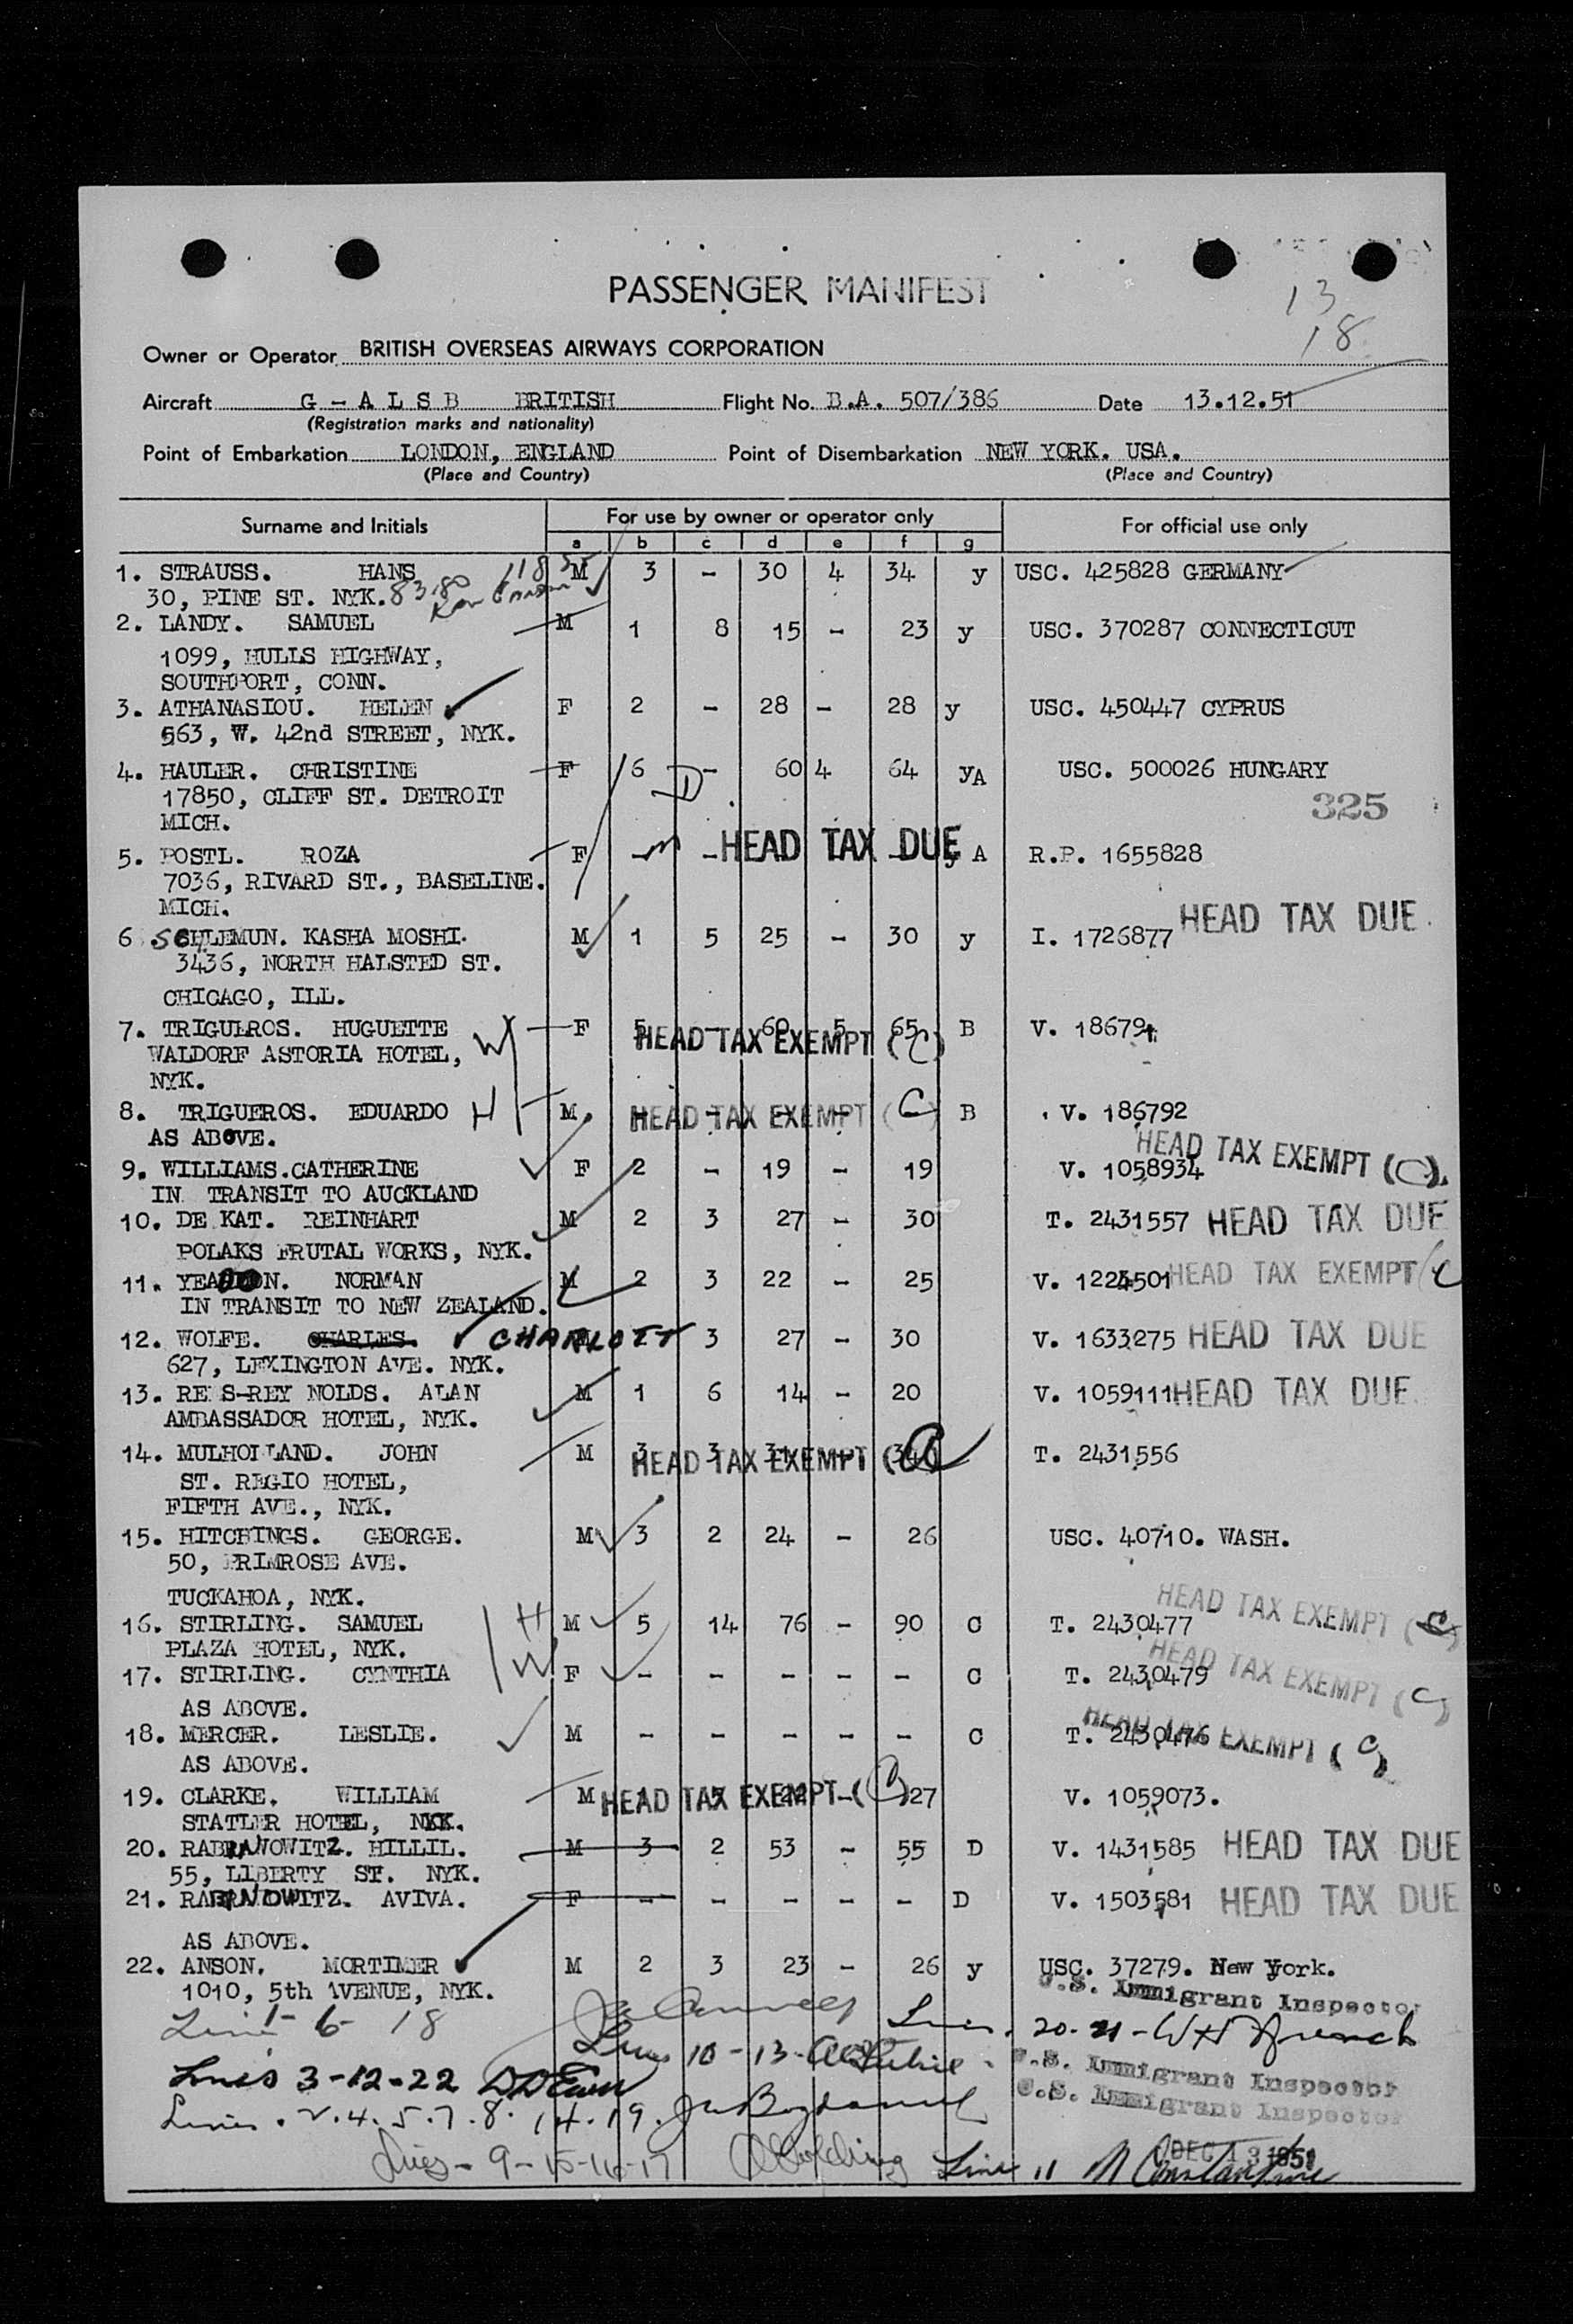 13
18
PASSENGER MANIFEST
Owner or Operator BRITISH OVERSEAS AIRWAYS CORPORATION
Aircraft G - A L S B BRITISH Flight No. B.A. 507/386 Date 13.12.51
(Registration marks and nationality)
Point of Embarkation LONDON, ENGLAND Point of Disembarkation NEW YORK. USA.
(Place and Country) (Place and Country)
Surname and Initials For use by owner or operator only For official use only
a b c d e f g
1. STRAUSS. HANS M 3 - 30 4 34 y USC. 425828 GERMANY
30, PINE ST. NYK. 83.80
2. LANDY. SAMUEL M 1 8 15 - 23 y USC. 370287 CONNECTICUT
1099, HULLS HIGHWAY,
SOUTHPORT, CONN.
3. ATHANASIOU. HELEN F 2 - 28 - 28 y USC. 450447 CYPRUS
563, W. 42nd STREET, NYK.
4. HAULER. CHRISTINE F 6 - 60 4 64 yA USC. 500026 HUNGARY
17850, CLIFF ST. DETROIT 325
MICH.
5. POSTL. ROZA F - - HEAD TAX DUE y A R.P. 1655828
7036, RIVARD ST., BASELINE.
MICH. HEAD TAX DUE
6. SCHLEMUN. KASHA MOSHI. M 1 5 25 - 30 y I. 1726877
3436, NORTH HALSTED ST.
CHICAGO, ILL.
7. TRIGUEROS. HUGUETTE W F 5 - 60 5 65 B V. 18679
WALDORF ASTORIA HOTEL, HEAD TAX EXEMPT (C)
NYK.
8. TRIGUEROS. EDUARDO H M - - - - HEAD TAX EXEMPT (C) B V. 186792
AS ABOVE. HEAD TAX EXEMPT (C)
9. WILLIAMS.CATHERINE F 2 - 19 - 19 V. 1058934
IN TRANSIT TO AUCKLAND
10. DE KAT. REINHART M 2 3 27 - 30 T. 2431557 HEAD TAX DUE
POLAKS FRUTAL WORKS, NYK.
11. NORMAN M 2 3 22 - 25 V. HEAD TAX EXEMPT (C
IN TRANSIT TO NEW ZEALAND.
12. WOLFE. CHARLES. CHARLOTT 3 27 - 30 V. 1633275 HEAD TAX DUE
627, LEXINGTON AVE. NYK.
13. RE S-REY NOLDS. ALAN M 1 6 14 - 20 V. 1059111 HEAD TAX DUE
AMBASSADOR HOTEL, NYK.
14. MULHOLLAND. JOHN M 3 3 HEAD TAX EXEMPT (C) T. 2431556
ST. REGIO HOTEL,
FIFTH AVE., NYK.
15. HITCHINGS. GEORGE. M 3 2 24 - 26 USC. 40710. WASH.
50, PRIMROSE AVE.
TUCKAHOA, NYK. HEAD TAX EXEMPT (C)
16. STIRLING. SAMUEL H M 5 14 76 - 90 C T. 2430477
PLAZA HOTEL, NYK. HEAD TAX EXEMPT (C)
17. STIRLING. CYNTHIA W F - - - - - C T. 2430479
AS ABOVE. HEAD TAX EXEMPT (C)
18. MERCER. LESLIE. M - - - - - C T. 2430476
AS ABOVE.
19. CLARKE. WILLIAM M 1 5 22 - 27 HEAD TAX EXEMPT (C) V. 1059073.
STATLER HOTEL, NYK.
20. RABRANOWITZ. HILLIL. M 3 2 53 - 55 D V. 1431585 HEAD TAX DUE
55, LIBERTY ST. NYK.
21. AVIVA. F - - - - - D V. 1503581 HEAD TAX DUE
AS ABOVE.
22. ANSON. MORTIMER M 2 3 23 - 26 y USC. 37279. New York.
1010, 5th AVENUE, NYK. U.S. Immigrant Inspector
Line 1-6-18 Lines. 20-21-WH French
Lines 10-13-
Lines 3-12-22 U.S. Immigrant Inspector
Lines. 2.4.5.7.8.14.19. U.S. Immigrant Inspector
Lines-9-15-16-17 Line 11 N Constantine
DEC 13 1951